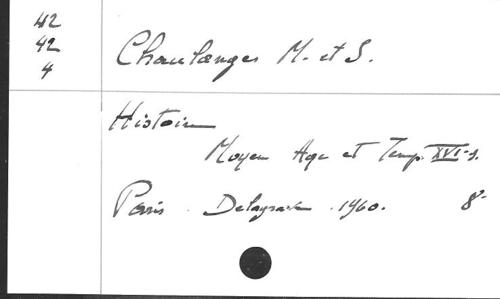 42
42
4
Chaulanges M. et S.
Histoire
Moyen Age et Temp. XVIe s.
Paris. Delagrave. 1960. 8°